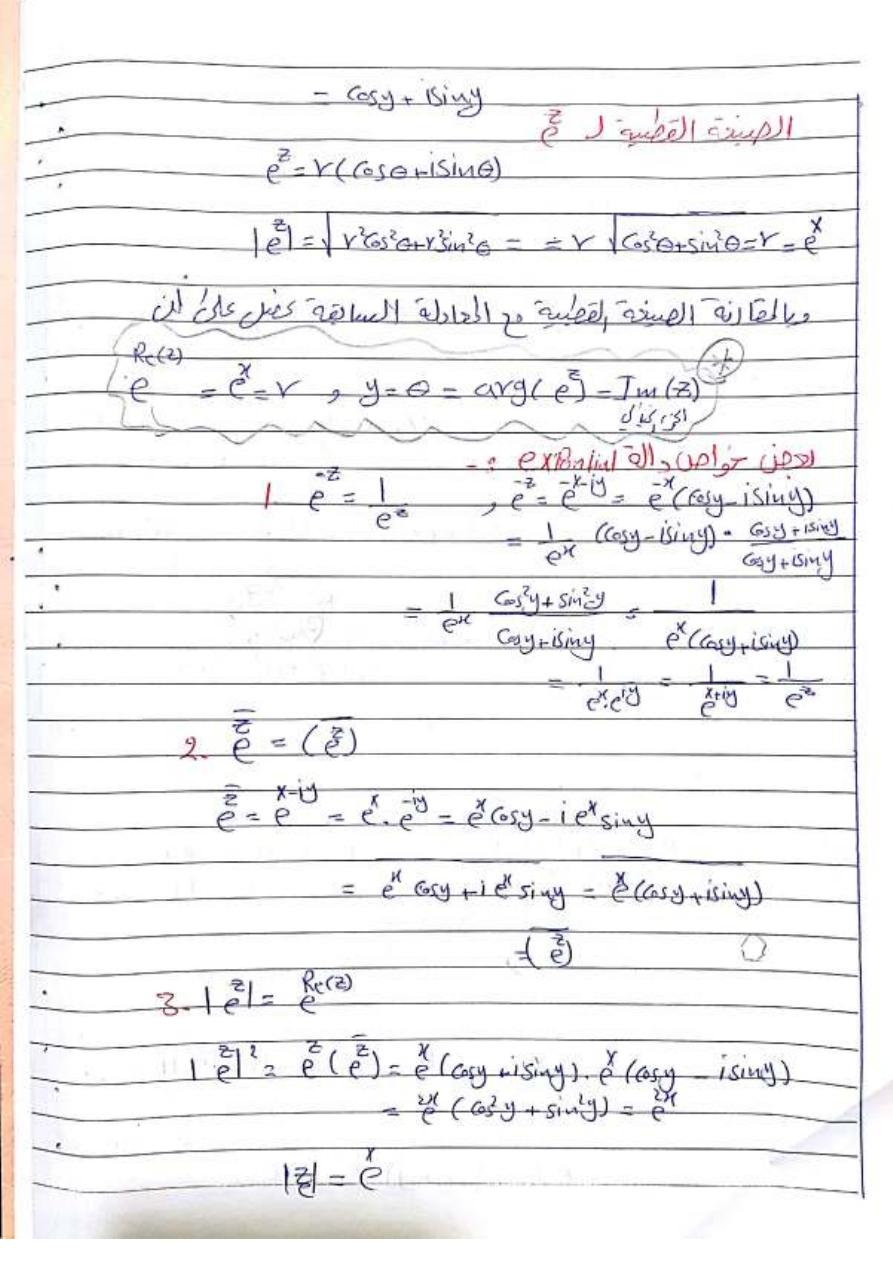 = Cosy + isiny
الصيغة القطبية لـ e^z
e^z = r(Cosθ + isinθ)
|e^z| = √(r²cos²θ+r²sin²θ) = = r √(Cos²θ+sin²θ) = r = e^x
وبالمقارنة الصيغة القطبية مع المعادلة السابقة نحصل على أن
e^Re(z) = e^x = r , y = θ = arg(e^z) = Im(z)
بعض خواص دالة :-
1. e^-z = 1/e^z , e^-z = e^-x-iy = e^-x (Cosy - isiny)
= 1/e^x (Cosy - isiny) · (Cosy + isiny)/(Cosy + isiny)
= 1/e^x (Cos²y + sin²y)/(Cosy + isiny) = 1/(e^x (Cosy + isiny))
= 1/(e^x·e^iy) = 1/e^x+iy = 1/e^z
2. e^z̅ = (e^z)̅
e^z̅ = e^x-iy = e^x · e^-iy = e^x Cosy - i e^x siny
= \overline{e^x Cosy + i e^x siny} = \overline{e^x (Cosy + isiny)}
= \overline{(e^z)}
3. |e^z| = e^Re(z)
|e^z|² = e^z (e^z̅) = e^x (Cosy + isiny) · e^x (cosy - isiny)
= e^2x (cos²y + sin²y) = e^2x
|e^z| = e^x